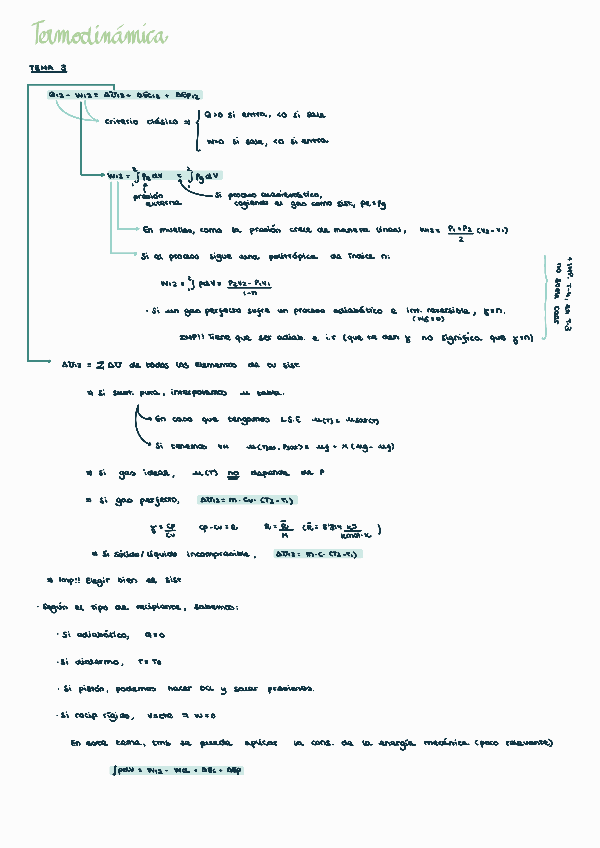 Termodinámica
TEMA 3
Q12 - W12 = ΔU12 + ΔEc12 + ΔEp12
criterio clásico ⇒ Q>0 si entra, <0 si sale
W>0 si sale, <0 si entra
W12 = ∫₁² Pe dV = ∫₁² Pg dV
presión externa
Si proceso cuasiestático,
cogiendo el gas como sist, pe = Pg
En muelles, como la presión crece de manera lineal, W12 = (P1+P2)/2 (V2-V1)
Si el proceso sigue una politrópica de índice n:
W12 = ∫₁² pdV = (P2V2 - P1V1)/(1-n)
· Si un gas perfecto sufre un proceso adiabático e int. reversible, γ=n.
IMP!! Tiene que ser adiab. e i.r (que te den γ no significa que γ=n)
ΔU12 = Σ ΔU de todos los elementos de tu sist
⇒ Si sust. pura, interpolamos u tabla.
En caso que tengamos L.S.E
Si tenemos VH
⇒ Si gas ideal, u(T) no depende de P
⇒ Si gas perfecto, ΔU12 = m · Cv · (T2-T1)
γ = Cp/Cv Cp-Cv = R
⇒ Si sólido/líquido incompresible, ΔU12 = m·c·(T2-T1)
⇒ Imp!! Elegir bien el sist
· Según el tipo de recipiente, sabemos:
· Si adiabático, Q=0
· Si diatermo, T=Te
· Si pistón, podemos hacer DCL y sacar presiones.
· Si recip rígido, V=cte ⇒ W=0
En este tema, tmb se puede aplicar la cons. de la energía mecánica (poco relevante)